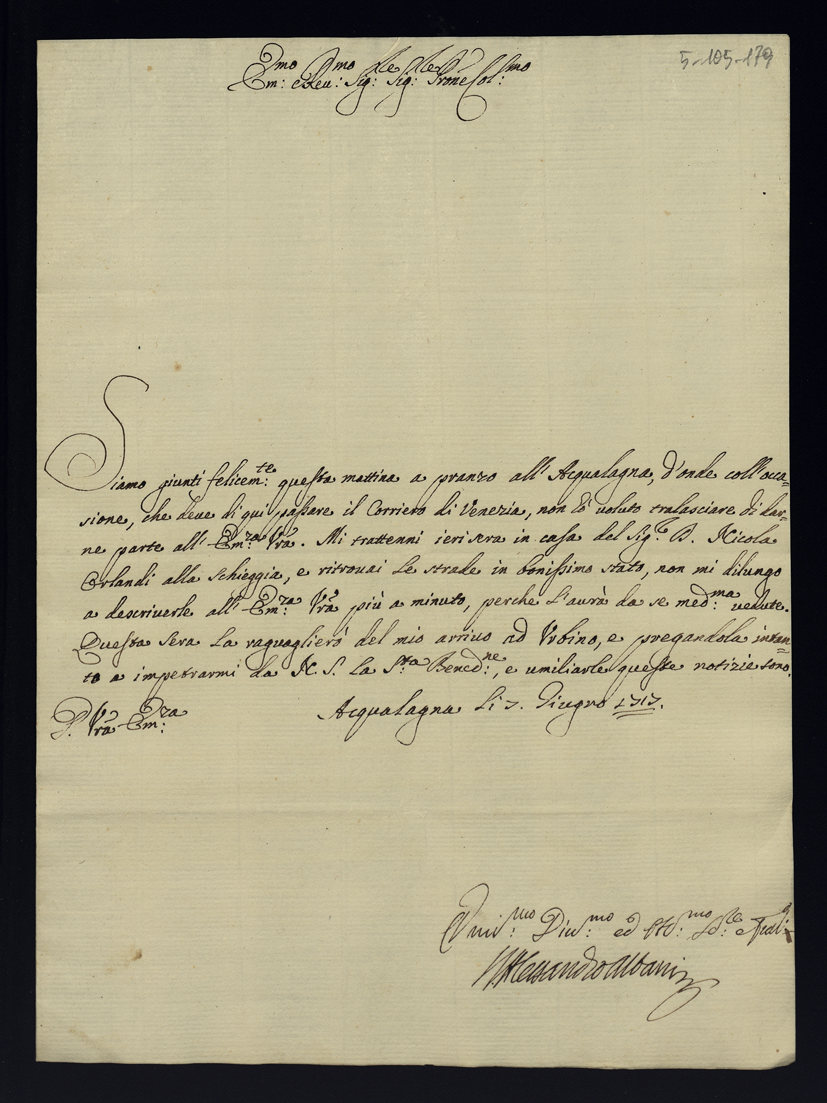 5-105-179
Em:mo e Reu:mo Sig:re Sig:re Prone Col:mo
Siamo giunti felicem:te questa mattina a pranzo all' Acqualagna, d'onde coll'occa=
sione, che deve di qui passare il Corriero di Venezia, non hò voluto tralasciare di dar=
ne parte all' Em:za Vrã. Mi trattenni ieri sera in casa del Sig:e D. Nicola
Orlandi alla Schieggia, e ritrovai le strade in bonissimo stato, non mi dilungo
a descriverle all' Em:za Vrã più a minuto, perche l'aurà da se med:ma vedute.
Questa sera la raguaglierò del mio arrivo ad Vrbino, e pregandola intan=
to a impetrarmi da N. S. la S:ta Bened:ne, e umiliarle queste notizie sono.
D. Vrã Em:za
Acqualagna li 7. Giugno 1717.
Vmi:mo Diu:mo ed Obb:mo S:re
Alessandro Albani